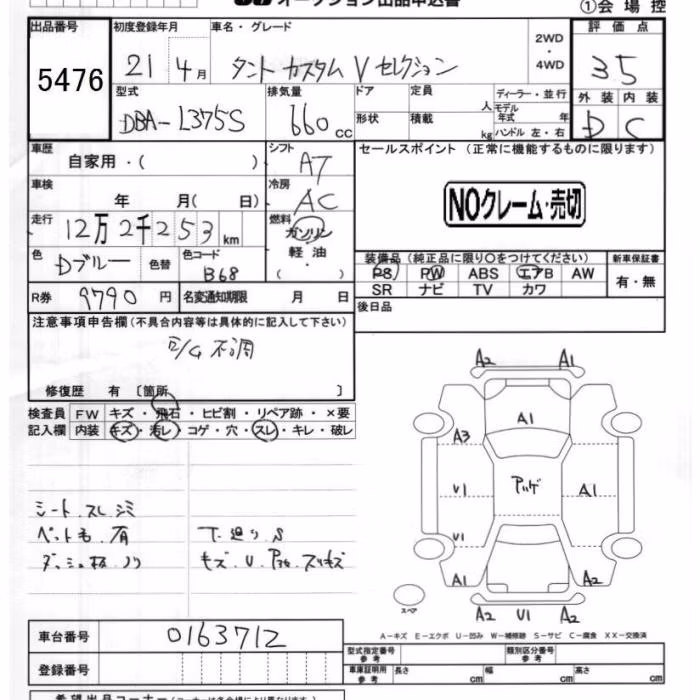 オークション出品申込書
①会場控
出品番号 初度登録年月 車名・グレード 2WD・4WD 評価点
5476 21 4月 タント カスタム V セレクション 35
型式 排気量 ドア 定員 人 ディーラー・並行 外装 内装
DBA-L375S 660cc 形状 積載 kg モデル年式 年 ハンドル 左・右 D C
車歴 自家用・( ) シフト AT セールスポイント (正常に機能するものに限ります)
車検 年 月( 日) 冷房 AC NOクレーム・売切
走行 12万2千253km 燃料 ガソリン 軽油 ( )
色 Dブルー 色替 色コード B68 装備品 (純正品に限り○をつけてください) 新車保証書
PS PW ABS エアB AW 有・無
SR ナビ TV カワ
R券 9790円 名変通知期限 月 日 後日品
注意事項申告欄(不具合内容等は具体的に記入して下さい)
E/G 不調
修復歴 有 〔箇所 〕
検査員 FW キズ・飛石・ヒビ割・リペア跡・×要
記入欄 内装 キズ・汚レ・コゲ・穴・スレ・キレ・破レ
シート スレ シミ
ペット毛 有 下廻り S
ダッシュ板 ノリ キズ.V.アゲ スリキズ
A2 A1
A1
A3
V1 アゲ A1
V1
A1 A2
スペア
A2 V1 A2
A-キズ E-エクボ U-凹み W-補修跡 S-サビ C-腐食 XX-交換済
車台番号 0163712 型式指定番号 参考 類別区分番号 参考
登録番号 車庫証明用 参考 長さ cm 幅 cm 高さ cm
希望出品コーナー